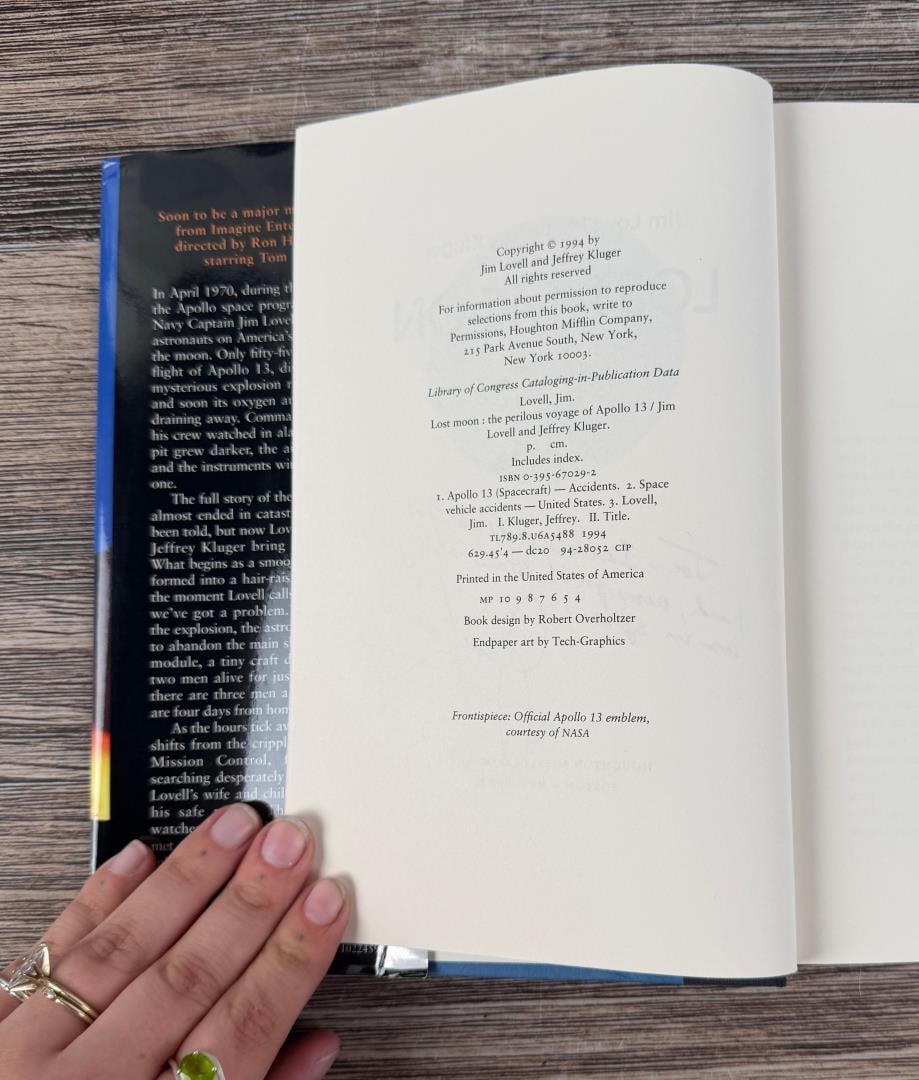 Soon to be a major
from Imagine
directed by Ron
starring Tom
In April 1970, during
the Apollo space
Navy Captain Jim
astronauts on America's
the moon. Only
flight of Apollo 13,
mysterious explosion
and soon its oxygen
draining away.
his crew watched in
pit grew darker, the
and the instruments
one.
The full story of the
almost ended in
been told, but now
Jeffrey Kluger bring
What begins as a
formed into a
the moment Lovell
we've got a problem.
the explosion, the
to abandon the main
module, a tiny craft
two men alive for
there are three men
are four days from
As the hours tick
shifts from the
Mission Control,
searching desperately
Lovell's wife and
his safe
Copyright © 1994 by
Jim Lovell and Jeffrey Kluger
All rights reserved
For information about permission to reproduce
selections from this book, write to
Permissions, Houghton Mifflin Company,
215 Park Avenue South, New York,
New York 10003.
Library of Congress Cataloging-in-Publication Data
Lovell, Jim.
Lost moon : the perilous voyage of Apollo 13 / Jim
Lovell and Jeffrey Kluger.
p. cm.
Includes index.
ISBN 0-395-67029-2
1. Apollo 13 (Spacecraft) — Accidents. 2. Space
vehicle accidents — United States. 3. Lovell,
Jim. I. Kluger, Jeffrey. II. Title.
TL789.8.U6A5488 1994
629.45'4 — dc20 94-28052 CIP
Printed in the United States of America
MP 10 9 8 7 6 5 4
Book design by Robert Overholtzer
Endpaper art by Tech-Graphics
Frontispiece: Official Apollo 13 emblem,
courtesy of NASA